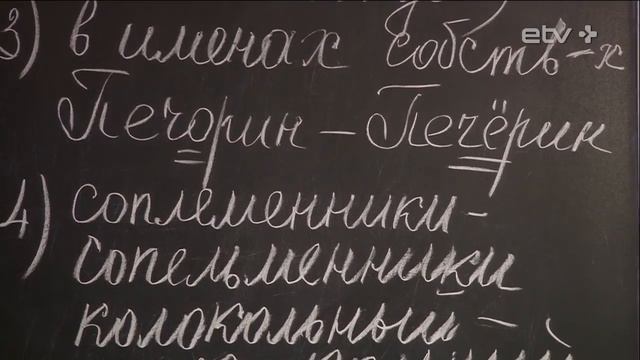 etv+
3) в именах собств-х
Печорин – Печёрин
4) соплеменники –
сопельменники
колокольный –